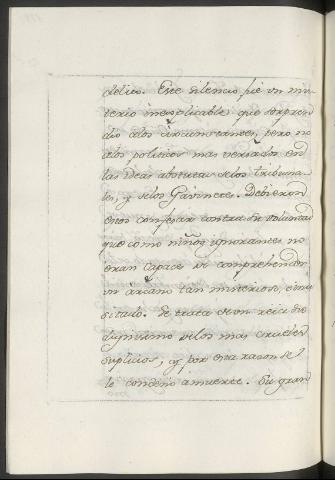 delito. Este silencio fue un mis-
terio inexplicable, que sorpren-
dio alos circunstantes, pero no
alos politicos mas versados en
las ideas abstrutas delos tribuna-
les, y delos Gavinetes. Debieron
estos confesar contra su voluntad
que como niños ignorantes no
eran capaces de comprehender
un arcano tan misterioso, é inu-
sitado. Se trata de un reicidio
dignisimo delos mas crueles
suplicios, y por esta razon se
le condenó amuerte. Su gran